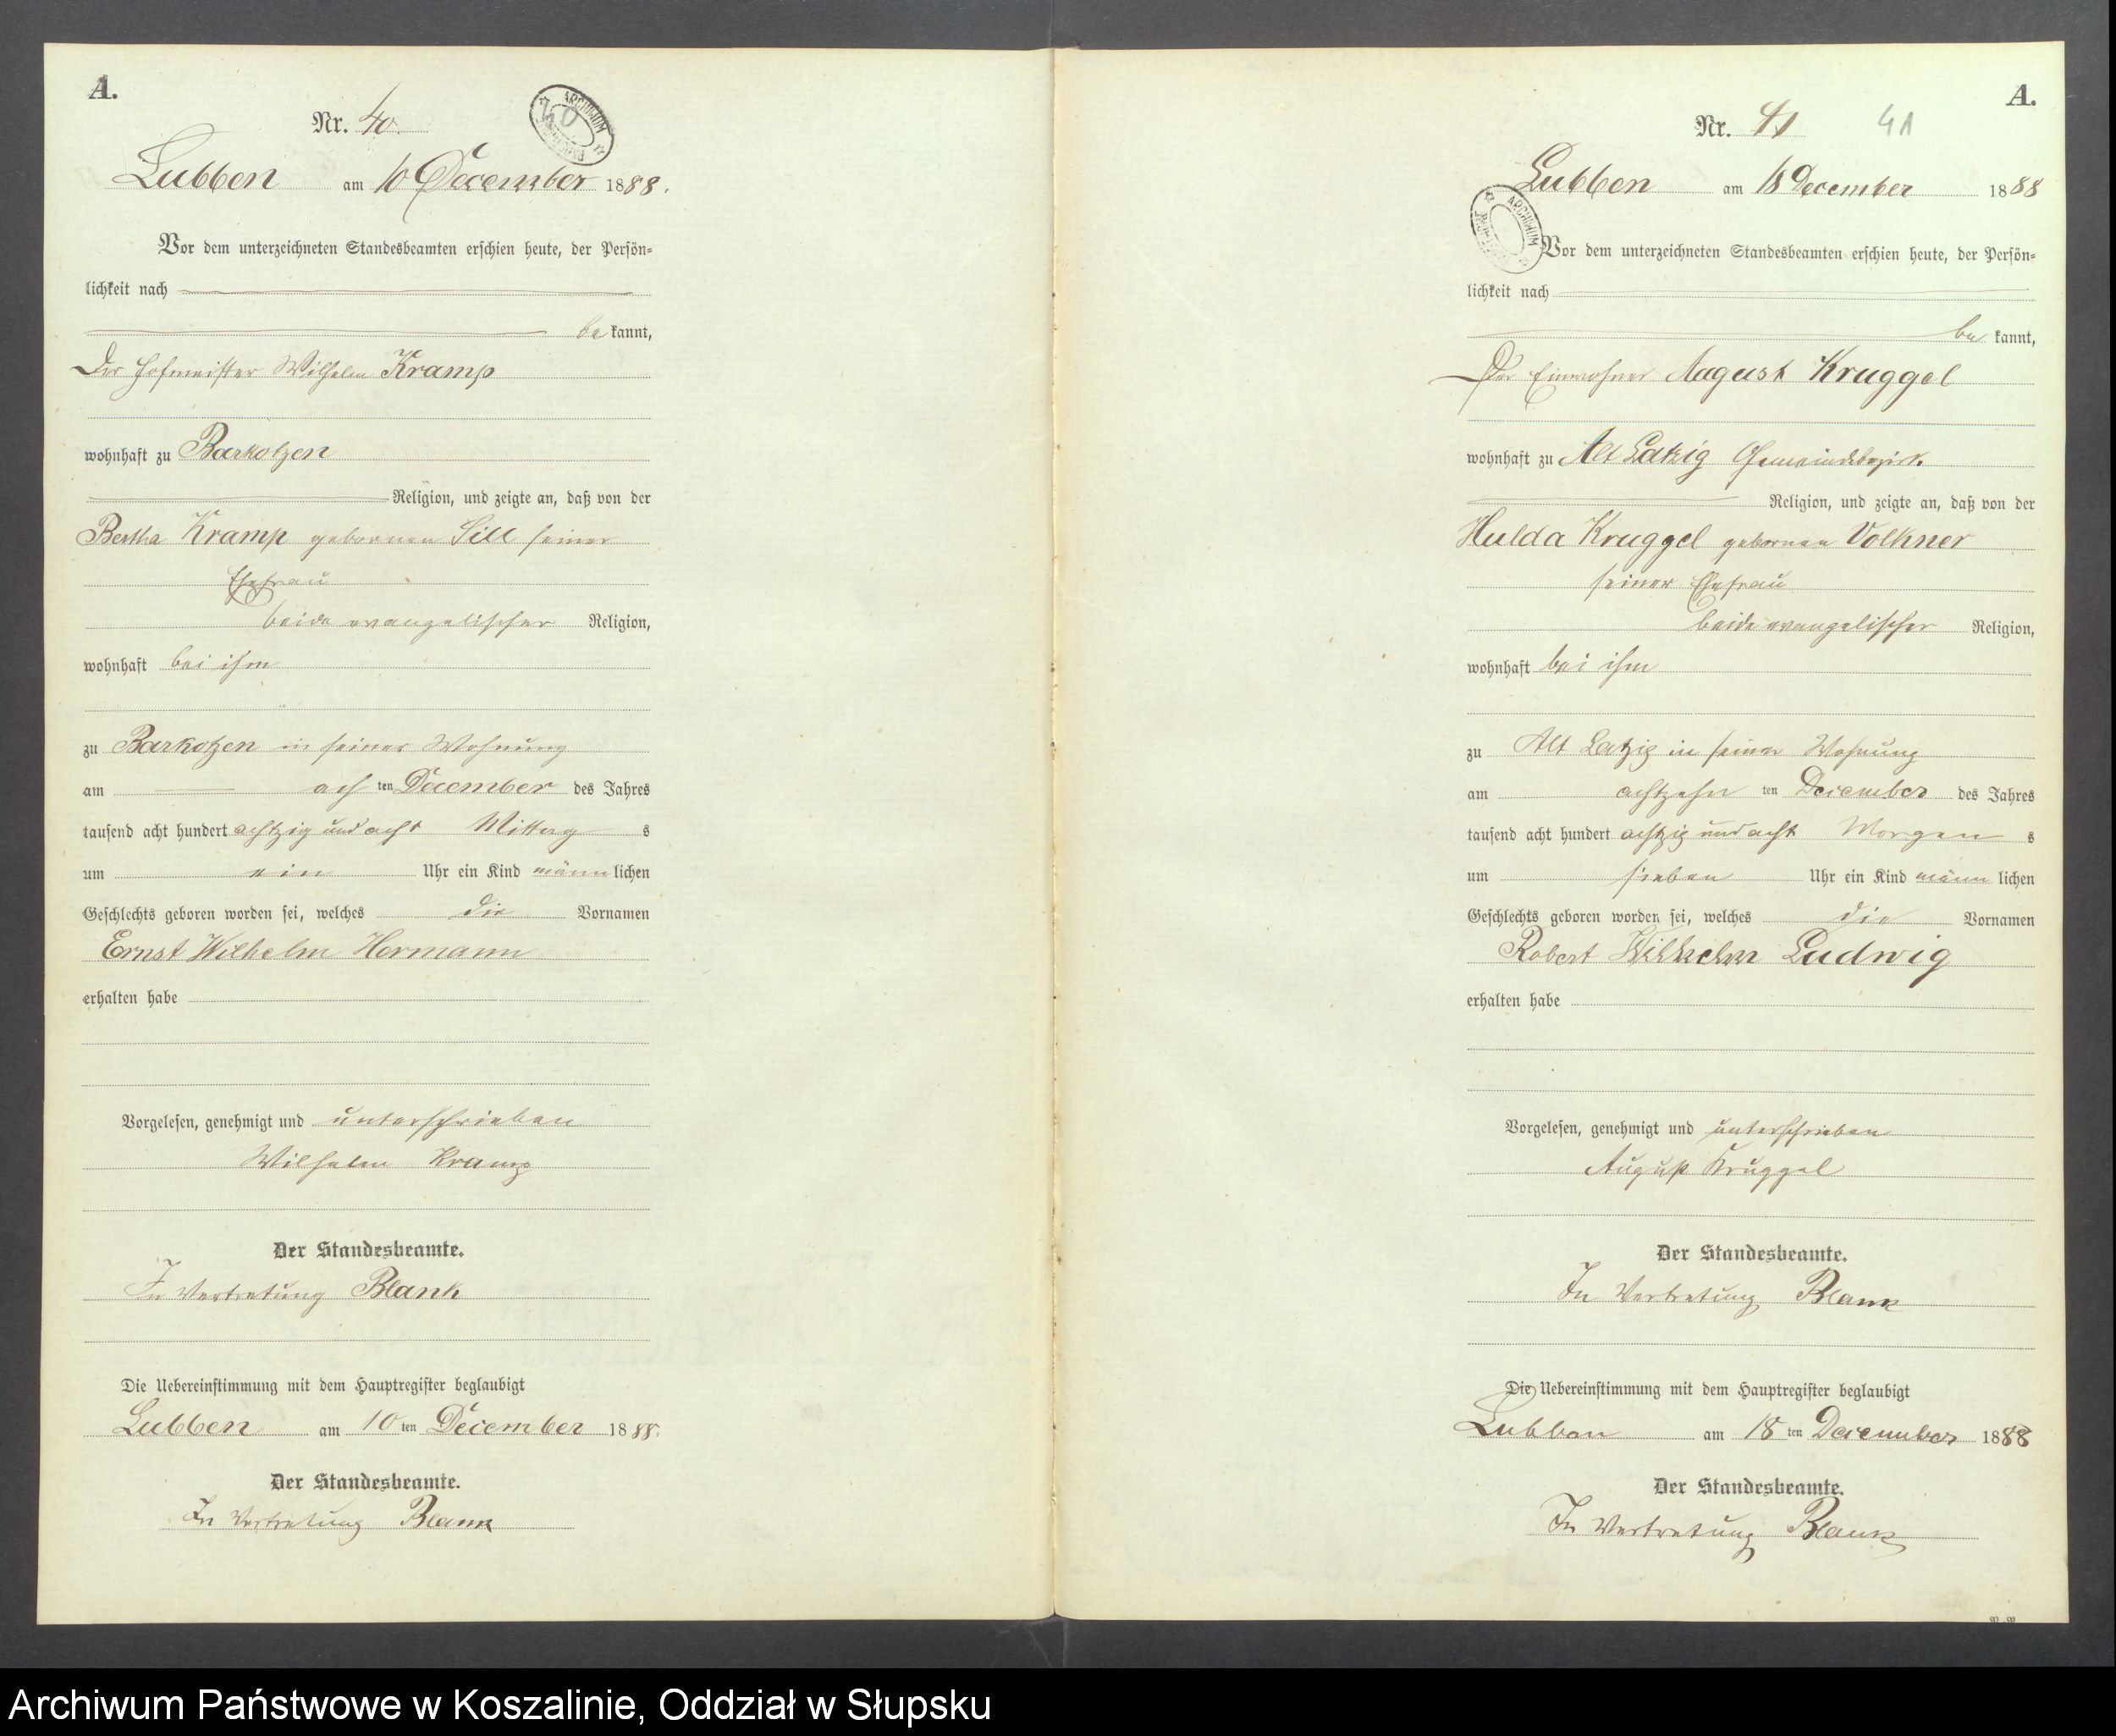 A.
Nr. 40.
ARCHIWUM
40
Lubben am 10 December 1888.
Vor dem unterzeichneten Standesbeamten erschien heute, der Persön-
lichkeit nach
be kannt,
Der Hofmeister Wilhelm Kramp
wohnhaft zu Barkotzen
Religion, und zeigte an, daß von der
Bertha Kramp gebornen Sill seiner
Ehefrau
beide evangelischer Religion,
wohnhaft bei ihm
zu Barkotzen in seiner Wohnung
am ach ten December des Jahres
tausend acht hundert achtzig und acht Mittag s
um ein Uhr ein Kind männ lichen
Geschlechts geboren worden sei, welches die Vornamen
Ernst Wilhelm Hermann
erhalten habe
Vorgelesen, genehmigt und unterschrieben
Wilhelm Kramp
Der Standesbeamte.
In Vertretung Blank
Die Uebereinstimmung mit dem Hauptregister beglaubigt
Lubben am 10 ten December 1888.
Der Standesbeamte.
In Vertretung Blank
A.
Nr. 41 41
Lubben am 18 December 1888
ARCHIWUM
Vor dem unterzeichneten Standesbeamten erschien heute, der Persön-
lichkeit nach
be kannt,
Der Einwohner August Kruggel
wohnhaft zu Alt Latzig Gemeindebezirk
Religion, und zeigte an, daß von der
Hulda Kruggel gebornen Volkner
seiner Ehefrau
beide evangelischer Religion,
wohnhaft bei ihm
zu Alt Latzig in seiner Wohnung
am achtzehn ten December des Jahres
tausend acht hundert achtzig und acht Morgen s
um sieben Uhr ein Kind männ lichen
Geschlechts geboren worden sei, welches die Vornamen
Robert Wilhelm Ludwig
erhalten habe
Vorgelesen, genehmigt und unterschrieben
August Kruggel
Der Standesbeamte.
In Vertretung Blank
Die Uebereinstimmung mit dem Hauptregister beglaubigt
Lubben am 18 ten December 1888
Der Standesbeamte.
In Vertretung Blank
Archiwum Państwowe w Koszalinie, Oddział w Słupsku